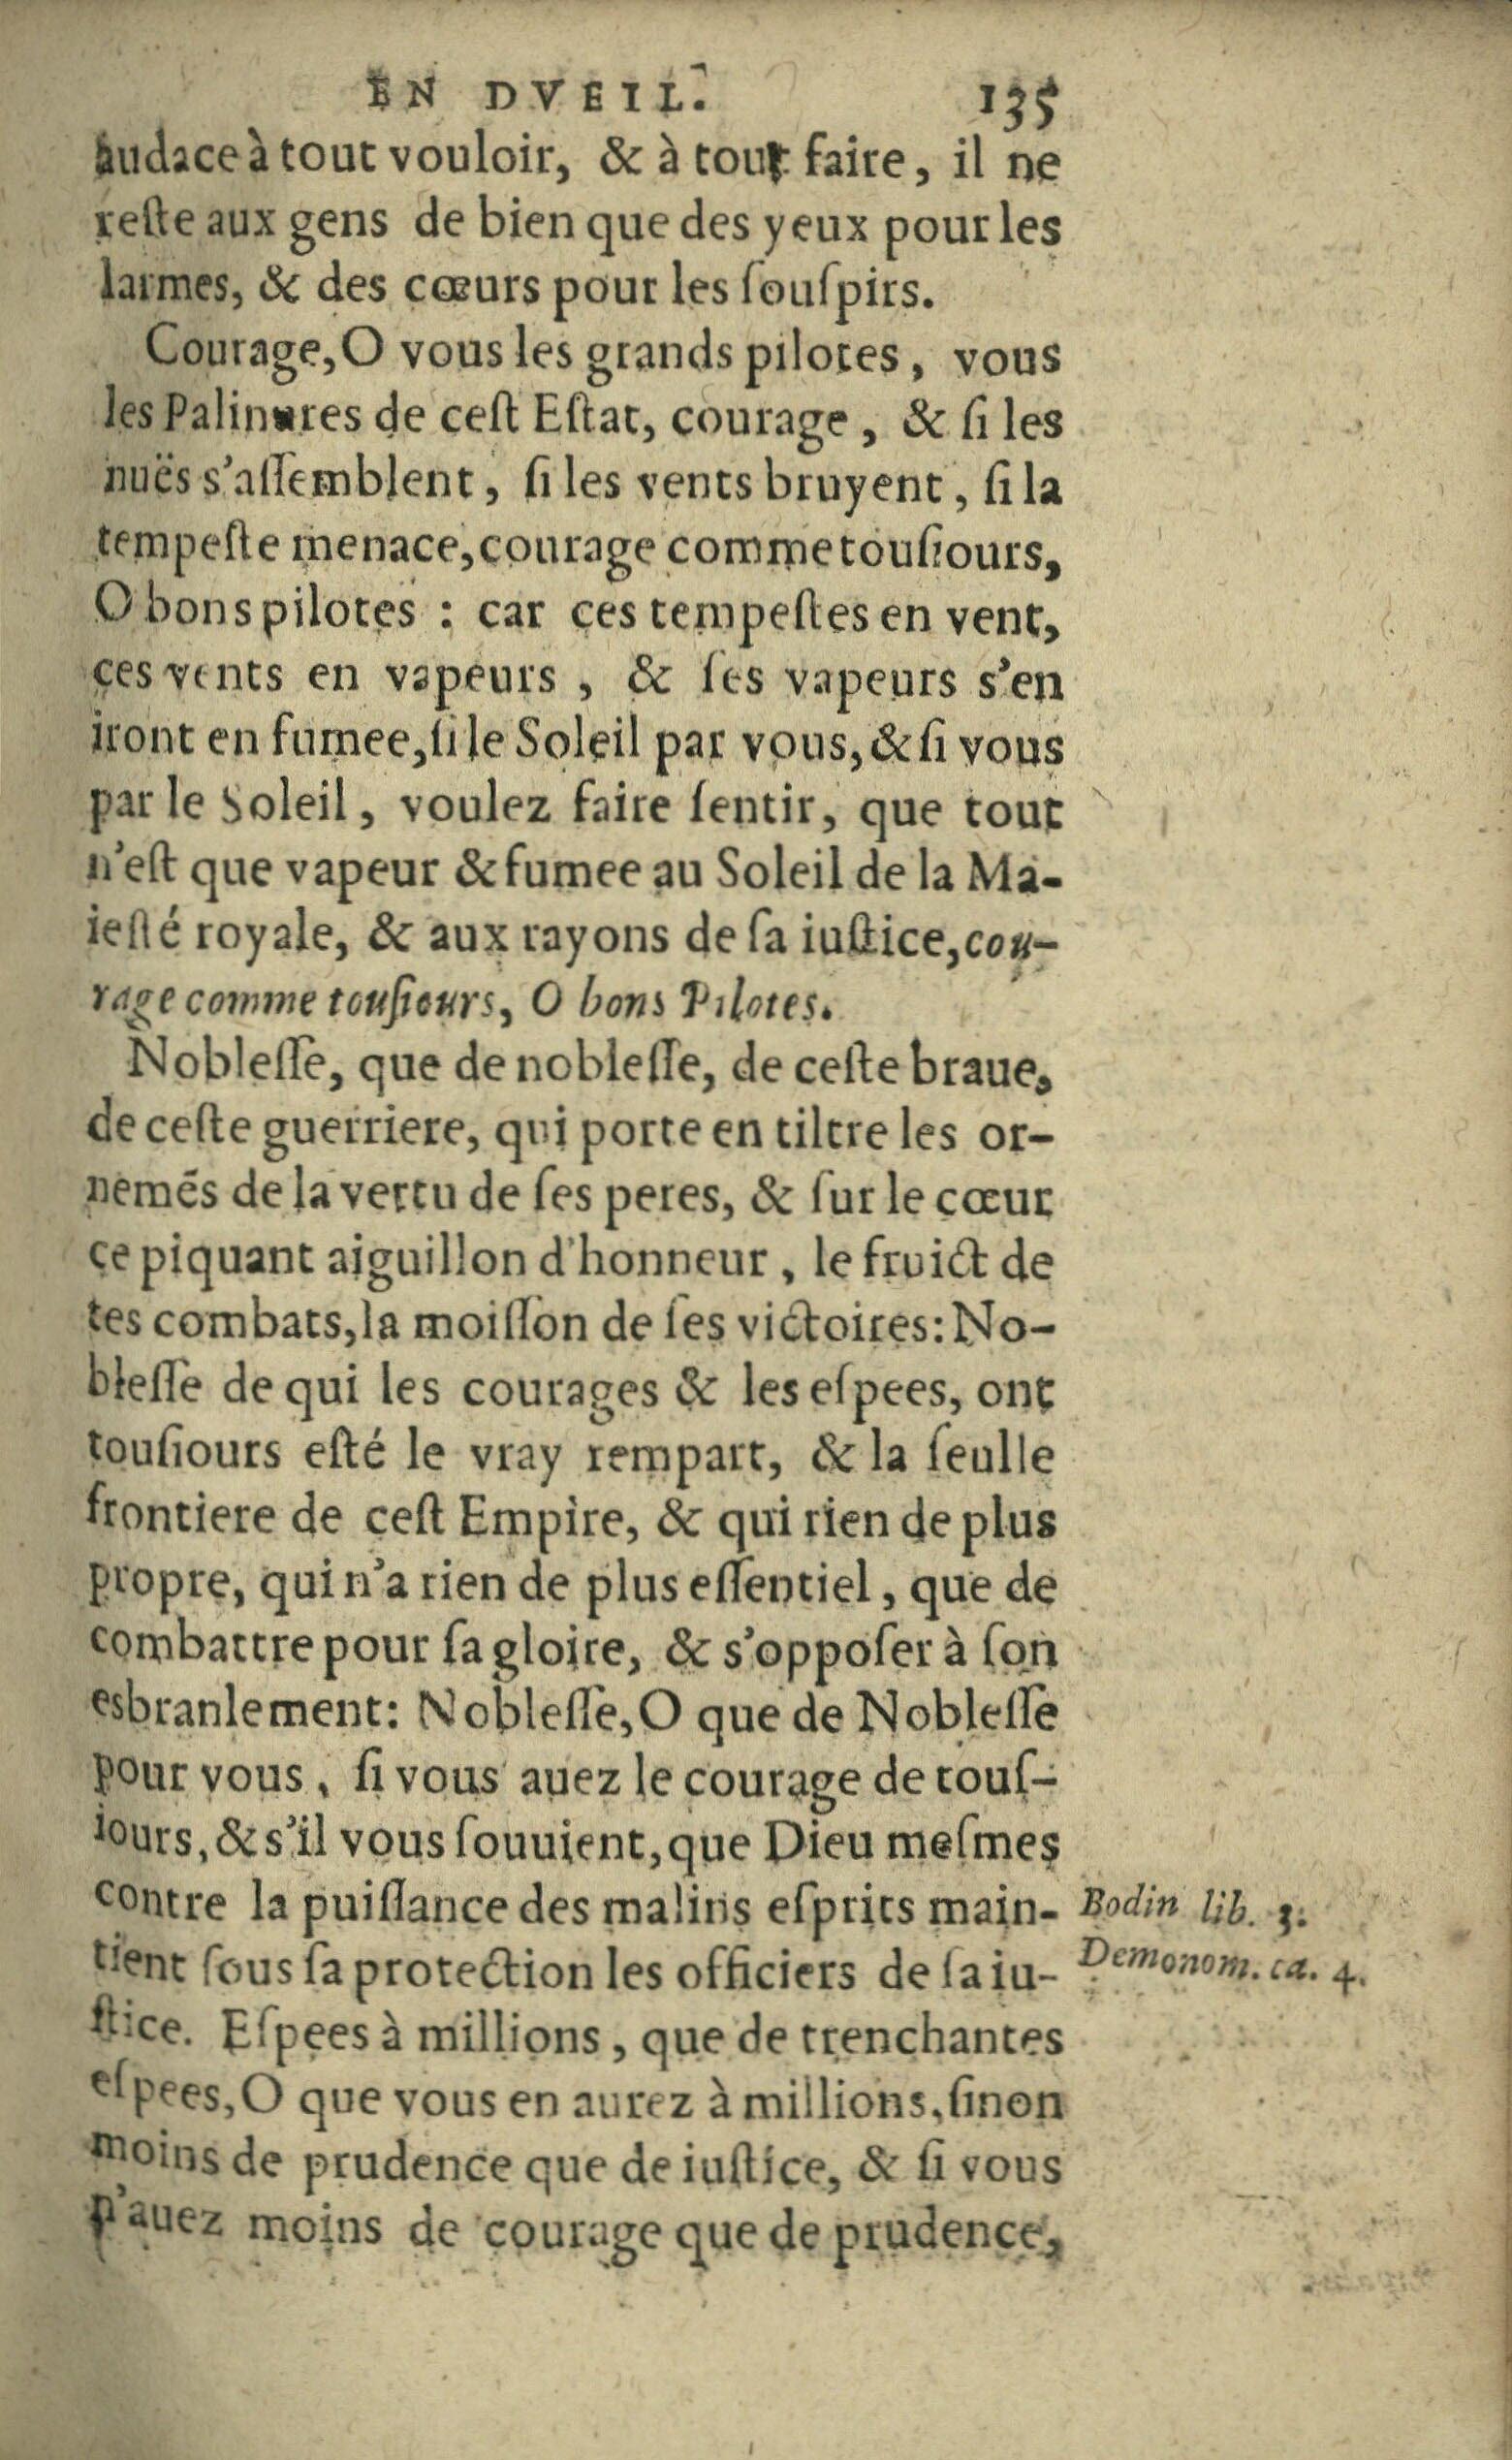 EN DVEIL. 135
audace à tout vouloir, & à tout faire, il ne
reſte aux gens de bien que des yeux pour les
larmes, & des cœurs pour les ſouſpirs.
Courage, O vous les grands pilotes, vous
les Palinures de ceſt Eſtat, courage, & ſi les
nuës s'aſſemblent, ſi les vents bruyent, ſi la
tempeſte menace, courage comme touſiours,
O bons pilotes : car ces tempeſtes en vent,
ces vents en vapeurs, & ſes vapeurs s'en
iront en fumee, ſi le Soleil par vous, & ſi vous
par le Soleil, voulez faire ſentir, que tout
n'eſt que vapeur & fumee au Soleil de la Ma-
ieſté royale, & aux rayons de ſa iuſtice, cou-
rage comme touſiours, O bons Pilotes.
Nobleſſe, que de nobleſſe, de ceſte braue,
de ceſte guerriere, qui porte en tiltre les or-
nemẽs de la vertu de ſes peres, & ſur le cœur
ce piquant aiguillon d'honneur, le fruict de
tes combats, la moiſſon de ſes victoires: No-
bleſſe de qui les courages & les eſpees, ont
touſiours eſté le vray rempart, & la ſeulle
frontiere de ceſt Empire, & qui rien de plus
propre, qui n'a rien de plus eſſentiel, que de
combattre pour ſa gloire, & s'oppoſer à ſon
esbranlement: Nobleſſe, O que de Nobleſſe
pour vous, ſi vous auez le courage de touſ-
iours, & s'il vous ſouuient, que Dieu meſmes
contre la puiſſance des malins eſprits main-
tient ſous ſa protection les officiers de ſa iu-
ſtice. Eſpees à millions, que de trenchantes
eſpees, O que vous en aurez à millions, ſinon
moins de prudence que de iuſtice, & ſi vous
n'auez moins de courage que de prudence,
Bodin lib. 3.
Demonom. ca. 4.